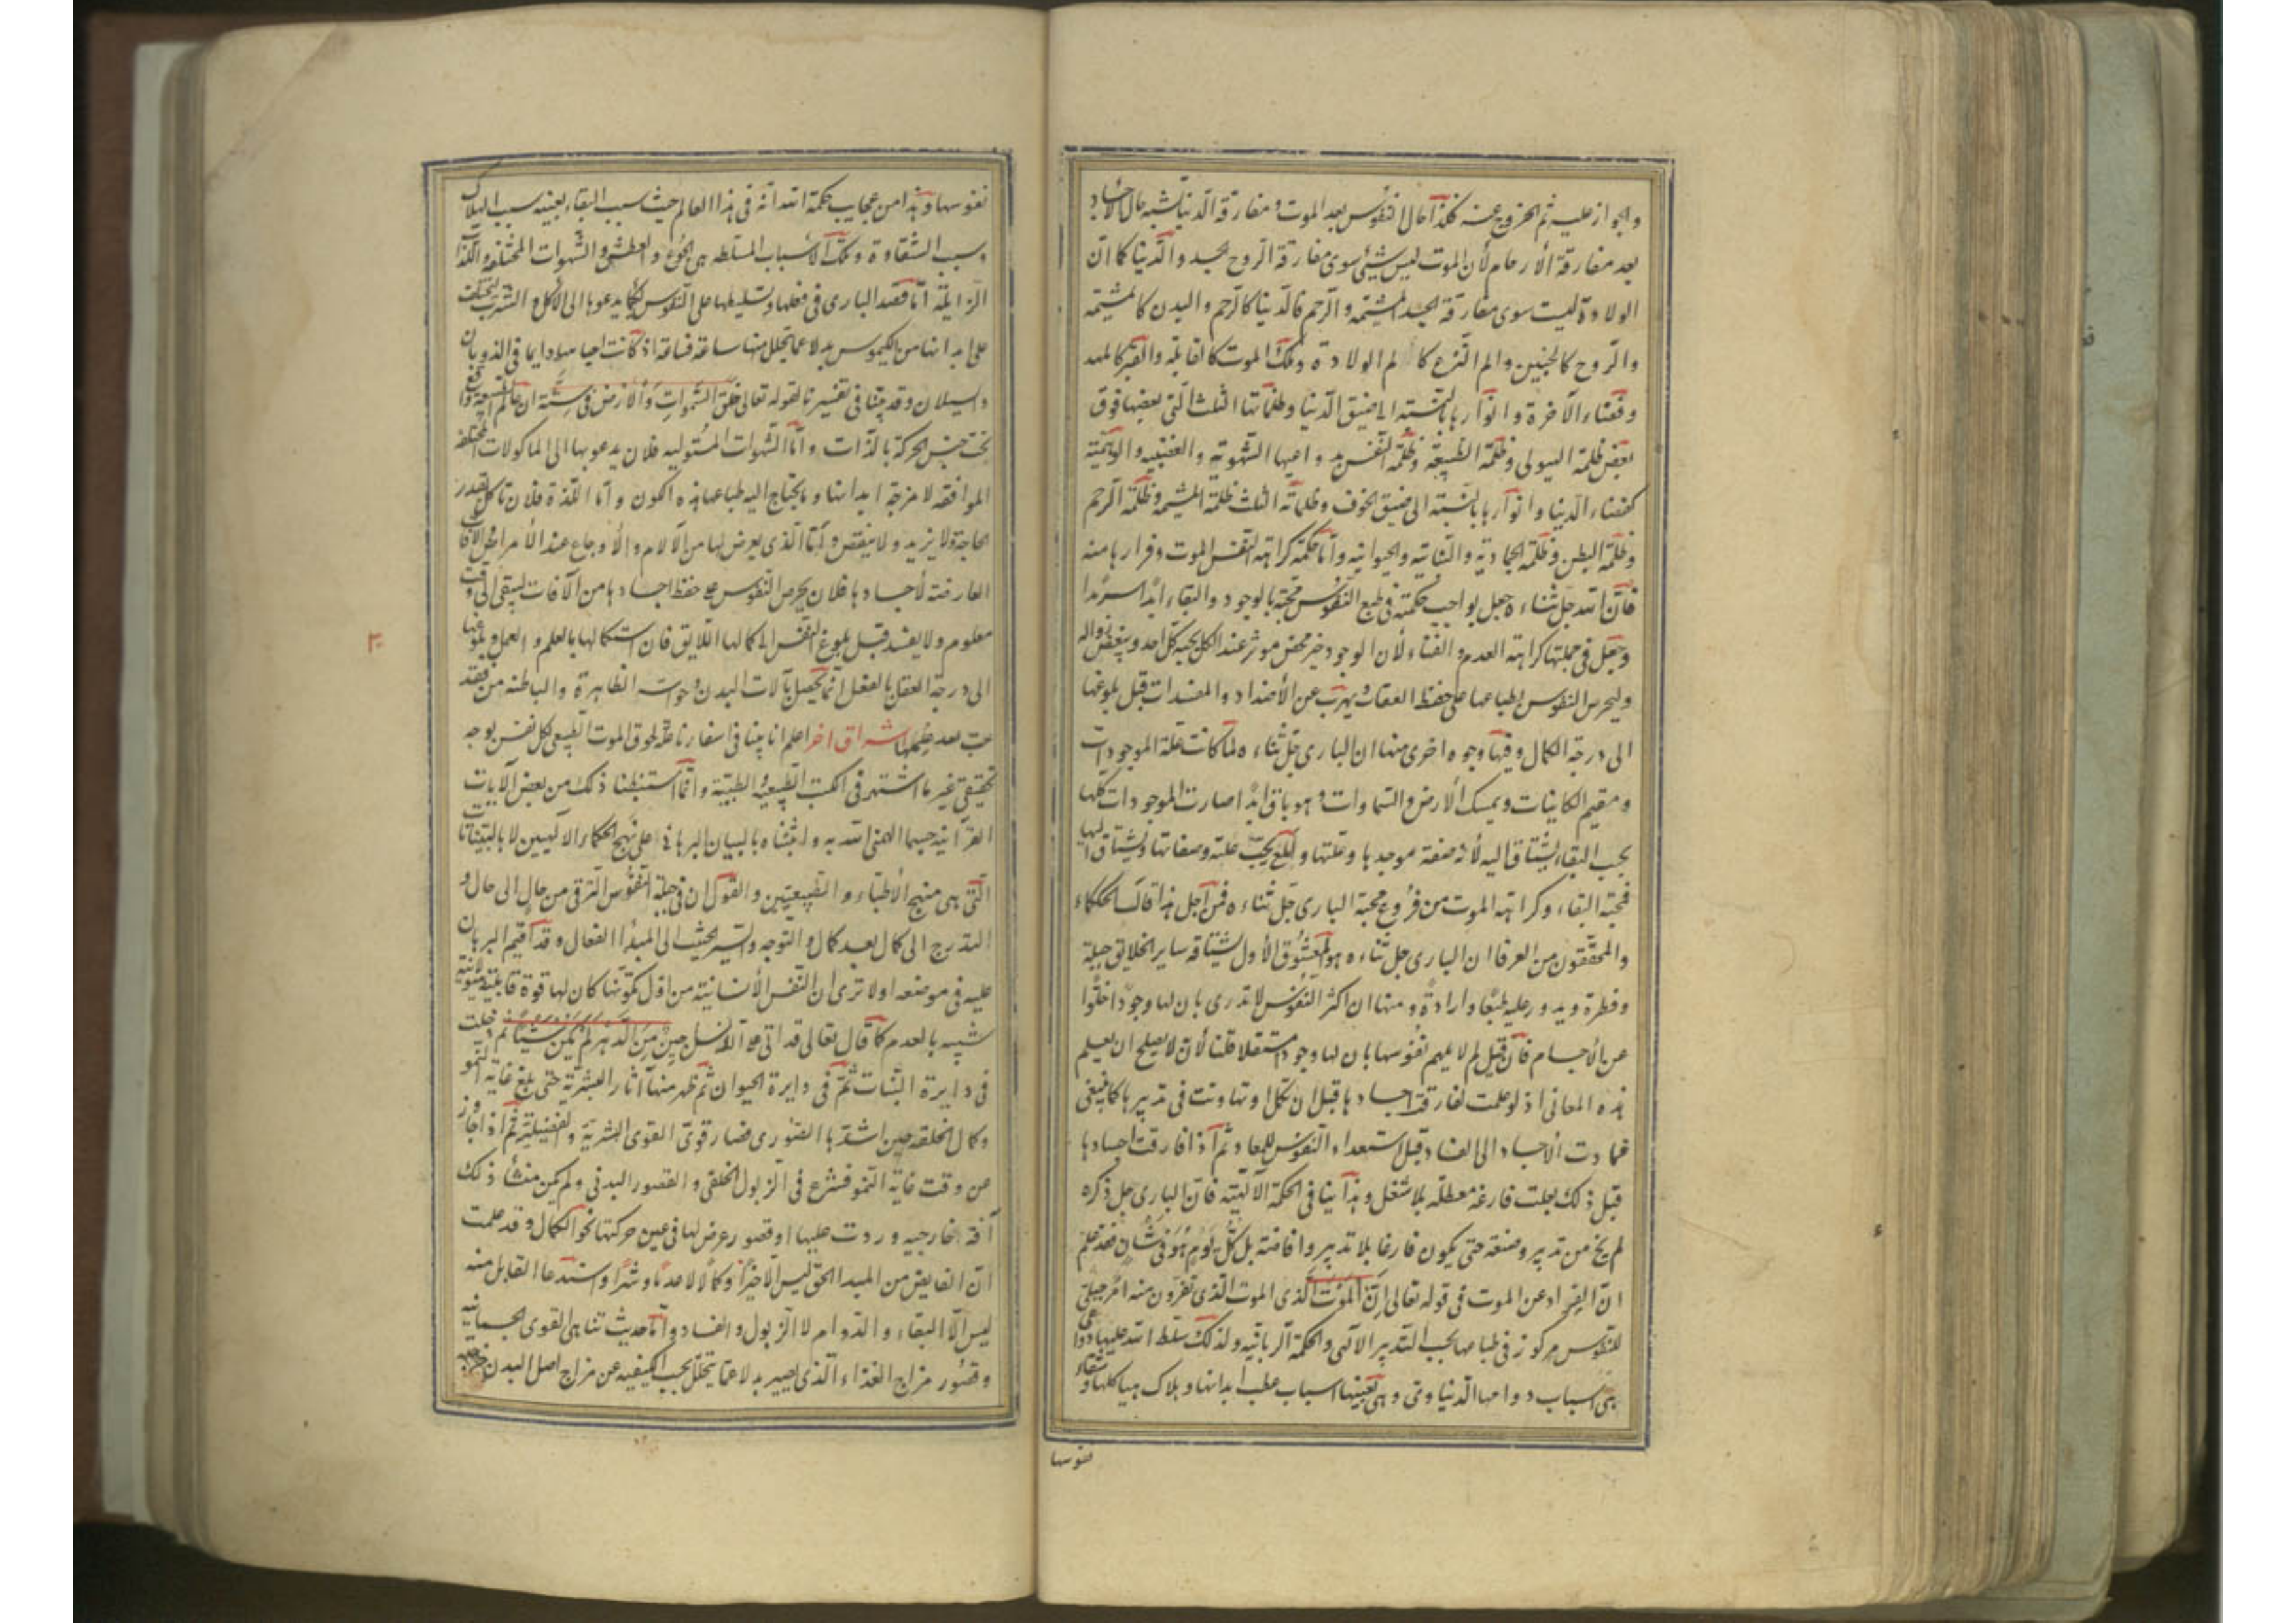 والجواز عليه ثم الخروج عنه فكذا حال النفوس بعد الموت ومفارقة الدنيا تشبه حال الاجساد
بعد مفارقة الأرحام لأن الموت ليس شيئ سوى مفارقة الروح الجسد والدنيا كما ان
الولادة ليست سوى مفارقة الجسد المشيمة والرحم فالدنيا كالرحم والبدن كالمشيمة
والروح كالجنين والم النزع كالم الولادة وملك الموت كالقابلة والقبر كالمهد
وفضاء الآخرة وانوارها بالنسبة الى ضيق الدنيا وظلماتها الثلث التي بعضها فوق
بعض ظلمة الهيولى وظلمة الطبيعة وظلمة النفس ودواعيها الشهوية والغضبية والوهمية
كفضاء الدنيا وانوارها بالنسبة الى ضيق الجوف وظلماته الثلث ظلمة المشيمة وظلمة الرحم
وظلمة البطن وظلمة الجمادية والنباتية والحيوانية وأما حكمة كراهة النفس الموت وفرارها منه
فأن الله جل ثناءه جعل بواجب حكمته في طبع النفوس محبة بالوجود والبقاء ابدا سرمدا
وجعل في جبلتها كراهة العدم والفناء لأن الوجود خير محض موثر عند الكل يحبه كل احد ويبغض زواله
وليحرس النفوس بطباعها على حفظ ويهرب عن الأضداد والمفسدات قبل بلوغها
الى درجة الكمال وفيها وجوه اخرى منها ان البارى جل ثناءه لما كانت علة الموجودات
ومقيم الكاينات ويمسك الأرض والسماوات وهو باق ابدا صارت الموجودات كلها
يحب البقاء ويشتاق اليه لأنه صفة موجدها وعلتها والمعلول يحب علته وصفاتها ويشتاق اليها
فمحبة البقاء وكراهة الموت من فروع محبة البارى جل ثناءه فمن أجل هذا قالت الحكماء
والمحققون من العرفا ان البارى جل ثناءه هو المعشوق الأول يشتاقه ساير الخلايق جبلة
وفطرة ويدور عليه طبعا وارادة ومنها ان اكثر النفوس لا تدرى بان لها وجودا خلوا
عن الأجسام فأن قيل لم لا يلهم نفوسها بان لها وجودا مستقلا قلنا لأن لا يصلح ان يعلم
هذه المعانى اذ لو علمت لفارقت اجسادها قبل ان تكمل او تهاونت في تدبيرها كما ينبغى
فعادت الأجساد الى الفساد قبل استعداد النفوس للمعاد ثم اذا فارقت اجسادها
قبل ذلك بطلت فارغة معطلة بلا شغل وهذا ينافى الحكمة الالهية فان البارى جل ذكره
لم يخل من تدبير وصنعة حتى يكون فارغا بلا تدبير وافاضة بل كل يوم هو فى شأن فقد علم
ان الفرار عن الموت فى قوله تعالى ان الموت الذى الموت الذى تفرون منه امر جبلى
للنفوس مركوز فى طباعها بحسب التدبير الالهى والحكمة الربانيه ولذلك سلط الله عليها دواعى
هى اسباب دوامها الدنياوى وهى بعينها اسباب عطب ابدانها وهلاك هياكلها وشقاء
نفوسها
نفوسها وهذا من عجايب حكمة الله انه في هذا العالم حيث سبب البقاء بعينه سبب الهلاك
وسبب الشقاوة وتلك الأسباب المسلطه هى الجوع والعطش والشهوات المختلفه واللذات
الزايلة اما قصد البارى في فعلها وتسليطها على النفوس لكيما يدعوها الى الأكل والشرب ليخلف
على ابدانها من الكيموس بدلا عما يتحلل منها ساعة فساعة اذ كانت اجسامها دايما في الذوبان
والسيلان وقد بينا في تفسيرنا لقوله تعالى خلق السموات والأرض في ستة ان عالم الطبيعة واقع
تحت جنس الحركة بالذات وأما الشهوات المستوليه فلان يدعو بها الى الماكولات المختلفه
الموافقه لامزجة ابدانها وما يحتاج اليه طباعها هذه الكون وأما اللذة فلان تاكل بقدر
الحاجة ولا يزيد ولا ينقص وأما الذى يعرض لها من الآلام والأوجاع عند الأمراض والآفات
العارضة لأجسادها فلان يحرص النفوس على حفظ اجسادها من الآفات ليبقى الى وقت
معلوم ولا يفسد قبل بلوغ النفس الى كمالها اللايق فان استكمالها بالعلم والعمل وبلوغها
الى درجة العقل بالفعل انما يحصل بآلات البدن وحواسه الظاهرة والباطنة من فقد
اشراق اخر اعلم انا بينا في اسفارنا علة لحوق الموت الطبيعى لكل نفس بوجه
تحقيقى غير ما اشتهر فى الكتب الطبيعية والطبية وانما استنبطنا ذلك من بعض الآيات
القرآنية حسبما الهمنى الله به واثبتناه بالبيان البرهانى على نهج الحكماء الالهيين لا بالبينات
التى هى منهج الأطباء والطبيعيين والقول ان في جبلة النفوس الترقى من حال الى حال و
التدرج الى كمال بعد كمال والتوجه والسير الحثيث الى المبدأ الفعال وقد اقيم البرهان
عليه فى موضعه اولا ترى ان النفس الأنسانية من اول تكونها كان لها قوة قابلية هيولانية
شبيه بالعدم كما قال تعالى قد اتى على الانسان حين من الدهر لم يكن شيئا ثم دخلت
فى دايرة النبات ثم فى دايرة الحيوان ثم ظهر منها آثار البشرية حتى بلغ غاية النمو
وكمال الخلقه حين اشتدها الصورى فصار قوى القوى البشرية والفضيلية ثم اذا جاوز
عن وقت غاية النمو فشرع فى الزبول الخلقى والقصور البدنى ولم يكن منشأ ذلك
آفة خارجيه وردت عليها او قصور عرض لها فى عين حركتها نحو الكمال وقد علمت
ان الفايض من المبدا الحق ليس الا خيرا وكمالا لا عدما وشرا واستدعا القابل منه
ليس الا البقاء والدوام لا الزبول والفساد وأما حديث تناهى القوى الجسمانيه
وقصور مزاج الغذاء الذى يصير بدلا عما يتحلل بحسب الكيفيه عن مزاج اصل البدن